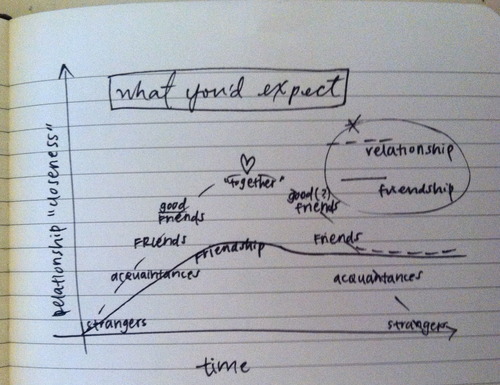 what you'd expect
relationship "closeness"
relationship
friendship
"together"
good
friends
good(?)
friends
FRIENDS
Friendship
Friends
acquaintances
acquaintances
strangers
strangers
time